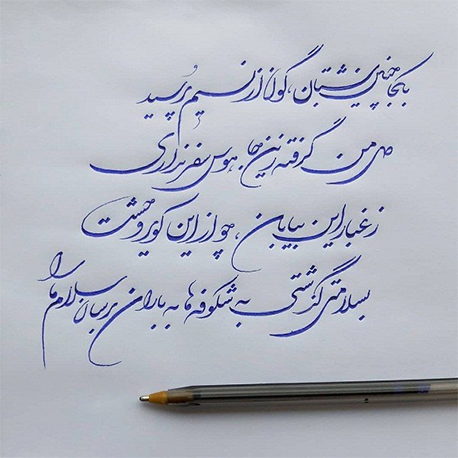 به کجا چنین شتابان، گون از نسیم پرسید
دل من گرفته زین جا، هوس سفر نداری
ز غبار این بیابان، چو از این کویر وحشت
به سلامتی گذشتی به شکوفه ها به باران برسان سلام ما را